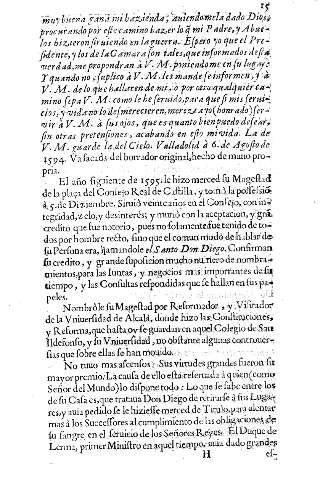 15
muy buena gana mi hazienda, auiendomela dado Dios,
procurando por este camino hazer lo q̃ mi Padre, y Abue-
los hizieron siruiendo en la guerra. Espero yo que el Pre-
sidente, y los de la Camara son tales, que informados desta
verdad, me propondran à V. M. poniendome en su lugar.
Y quando no, suplico à V. M. les mande se informen, y à
V. M. de lo que hallaren de mi: o por otro qualquier ca-
mino sepa V. M. como le he seruido, para que si mis serui-
cios, y vida no lo desmerecieren, merezca yo (honrado) ser-
vir à V. M. à sus ojos, que es quanto bien puedo desear,
sin otras pretensiones, acabando en esto mi vida. La de
V. M. guarde la del Cielo. Valladolid à 6. de Agosto de
1594. Va sacada del borrador original, hecho de mano pro-
pria.
El año siguiente de 1595. le hizo merced su Magestad
de la plaça del Consejo Real de Castilla, y tomò la possessiõ
à 5. de Diziembre. Siruiò veinte años en el Consejo, con in-
tegridad, zelo, y desinterès, y muriò con la aceptacion, y grã
credito que fue notorio, pues no solamente fue tenido de to-
dos por hombre recto, sino que el comun modo de hablar de
su Persona era, llamandole el Santo Don Diego. Confirman
su credito, y grande suposicion mucho numero de nombra-
mientos, para las Iuntas, y negocios mas importantes de su
tiempo, y las Consultas respondidas que se hallan en sus pa-
peles.
Nombròle su Magestad por Reformador, y Visitador
de la Vniuersidad de Alcalà, donde hizo las Constituciones,
y Reforma, que hasta oy se guardan en aquel Colegio de San
Ildefonso, y su Vniuersidad, no obstante algunas controuer-
sias que sobre ellas se han mouido.
No tuuo mas ascensos: Sus virtudes grandes fueron su
mayor premio. La causa de ello està reseruada à quien (como
Señor del Mundo) lo dispone todo: Lo que se sabe entre los
de su Casa es, que trataua Don Diego de retirarse à sus Luga-
res, y auia pedido se le hiziesse merced de Titulo, para alentar
mas à los Successores al cumplimiento de las obligaciones de
su sangre, en el seruicio de los Señores Reyes. El Duque de
Lerma, primer Ministro en aquel tiempo, auia dado grandes
H es-